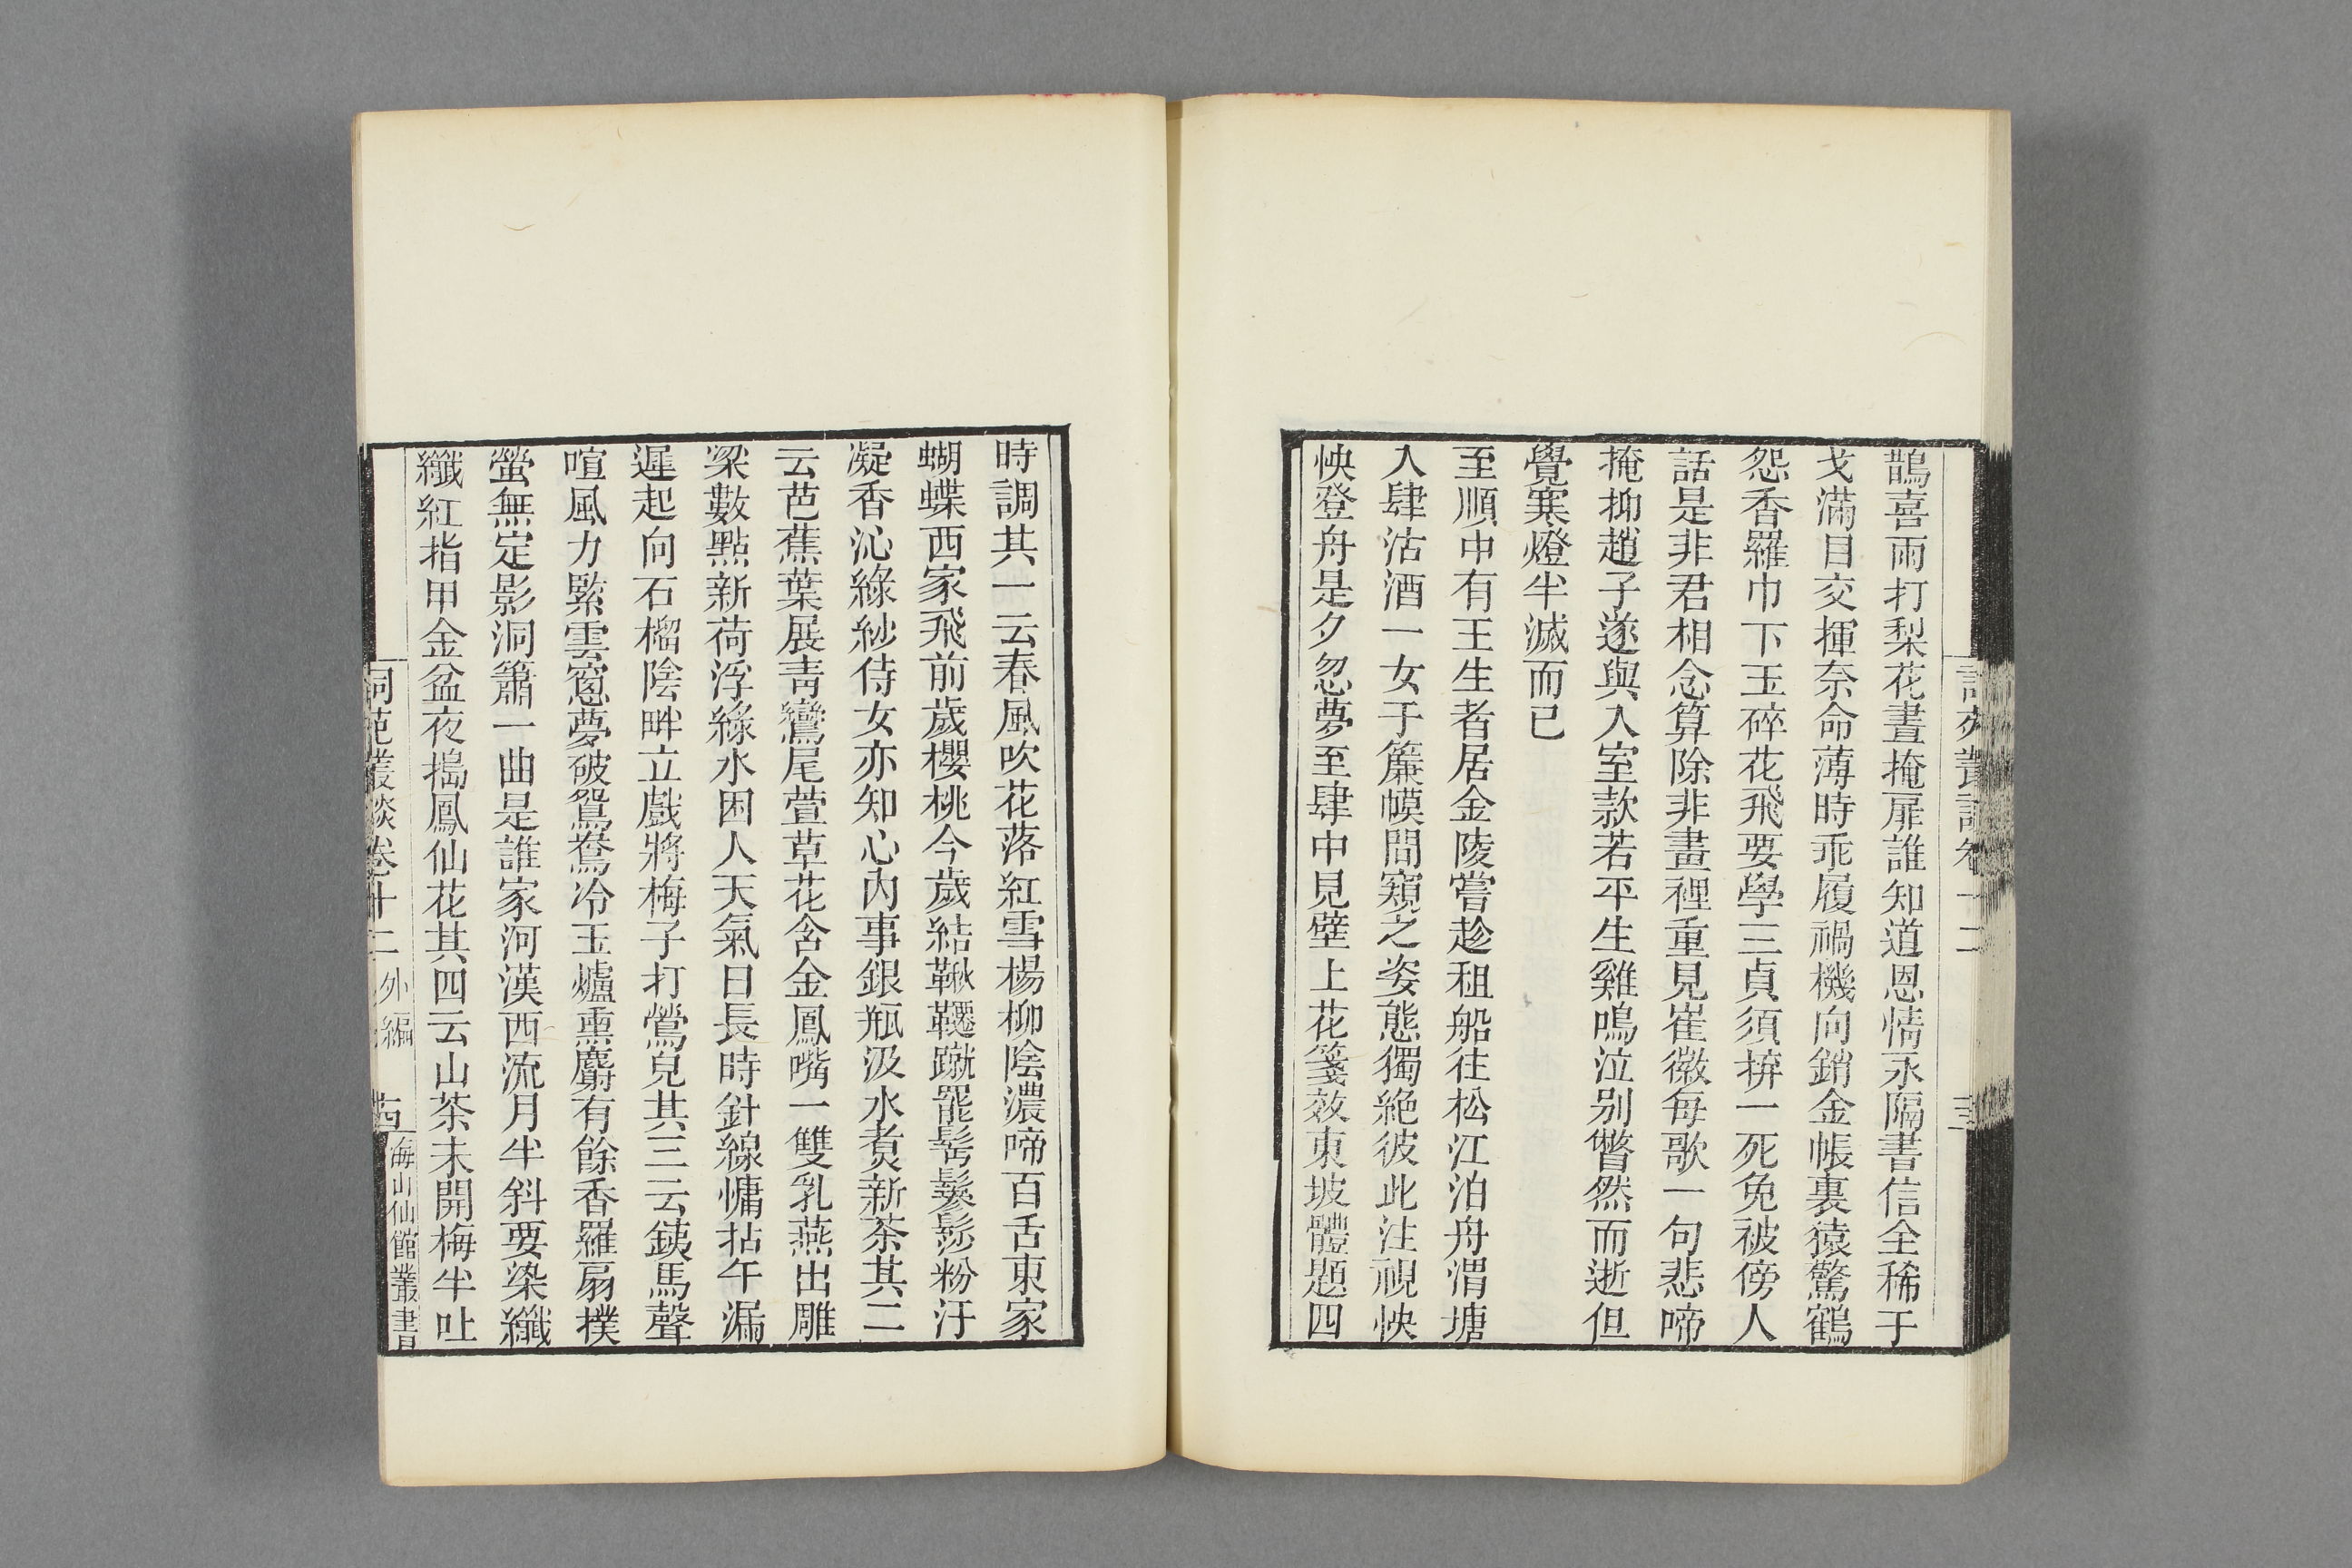 鵲喜雨打梨花晝掩扉誰知道恩情永隔書信全稀于
戈滿目交揮奈命薄時乖履禍機向銷金帳裏猿驚鶴
怨香羅巾下玉碎花飛要學三貞須拚一死免被傍人
話是非君相念算除非畫裡重見崔徽每歌一句悲啼
掩抑趙子遂與入室款若平生雞鳴泣別瞥然而逝但
覺寒燈半滅而已
至順中有王生者居金陵嘗趁租船往松江泊舟渭塘
入肆沽酒一女于簾幙間窺之姿態獨絶彼此注視怏
怏登舟是夕忽夢至肆中見壁上花箋效東坡體題四
時調其一云春風吹花落紅雪楊柳陰濃啼百舌東家
蝴蝶西家飛前歲櫻桃今歲結鞦韆蹴罷鬅鬖髿粉汙
凝香沁綠紗侍女亦知心內事銀瓶汲水煑新茶其二
云芭蕉葉展靑鸞尾萱草花含金鳳嘴一雙乳燕出雕
梁數點新荷浮綠水困人天氣日長時針線慵拈午漏
遲起向石榴陰畔立戲將梅子打鶯兒其三云鐵馬聲
喧風力緊雲窻夢破鴛鴦冷玉爐熏麝有餘香羅扇撲
螢無定影洞簫一曲是誰家河漢西流月半斜要染纖
纖紅指甲金盆夜搗鳳仙花其四云山茶未開梅半吐
詞苑叢談卷十二 外編
海山仙館叢書